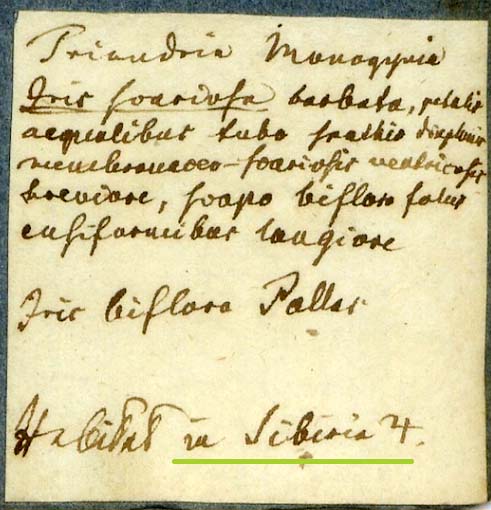 Triandria Monogynia
Iris scariosa barbata, petalis
aequalibus tubo spathis diaphanis
membranaceo-scariosis ventricosis
breviore, scapo bifloro foliis
ensiformibus longiore
Iris biflora Pallas
Habitat in Sibiria ♃.